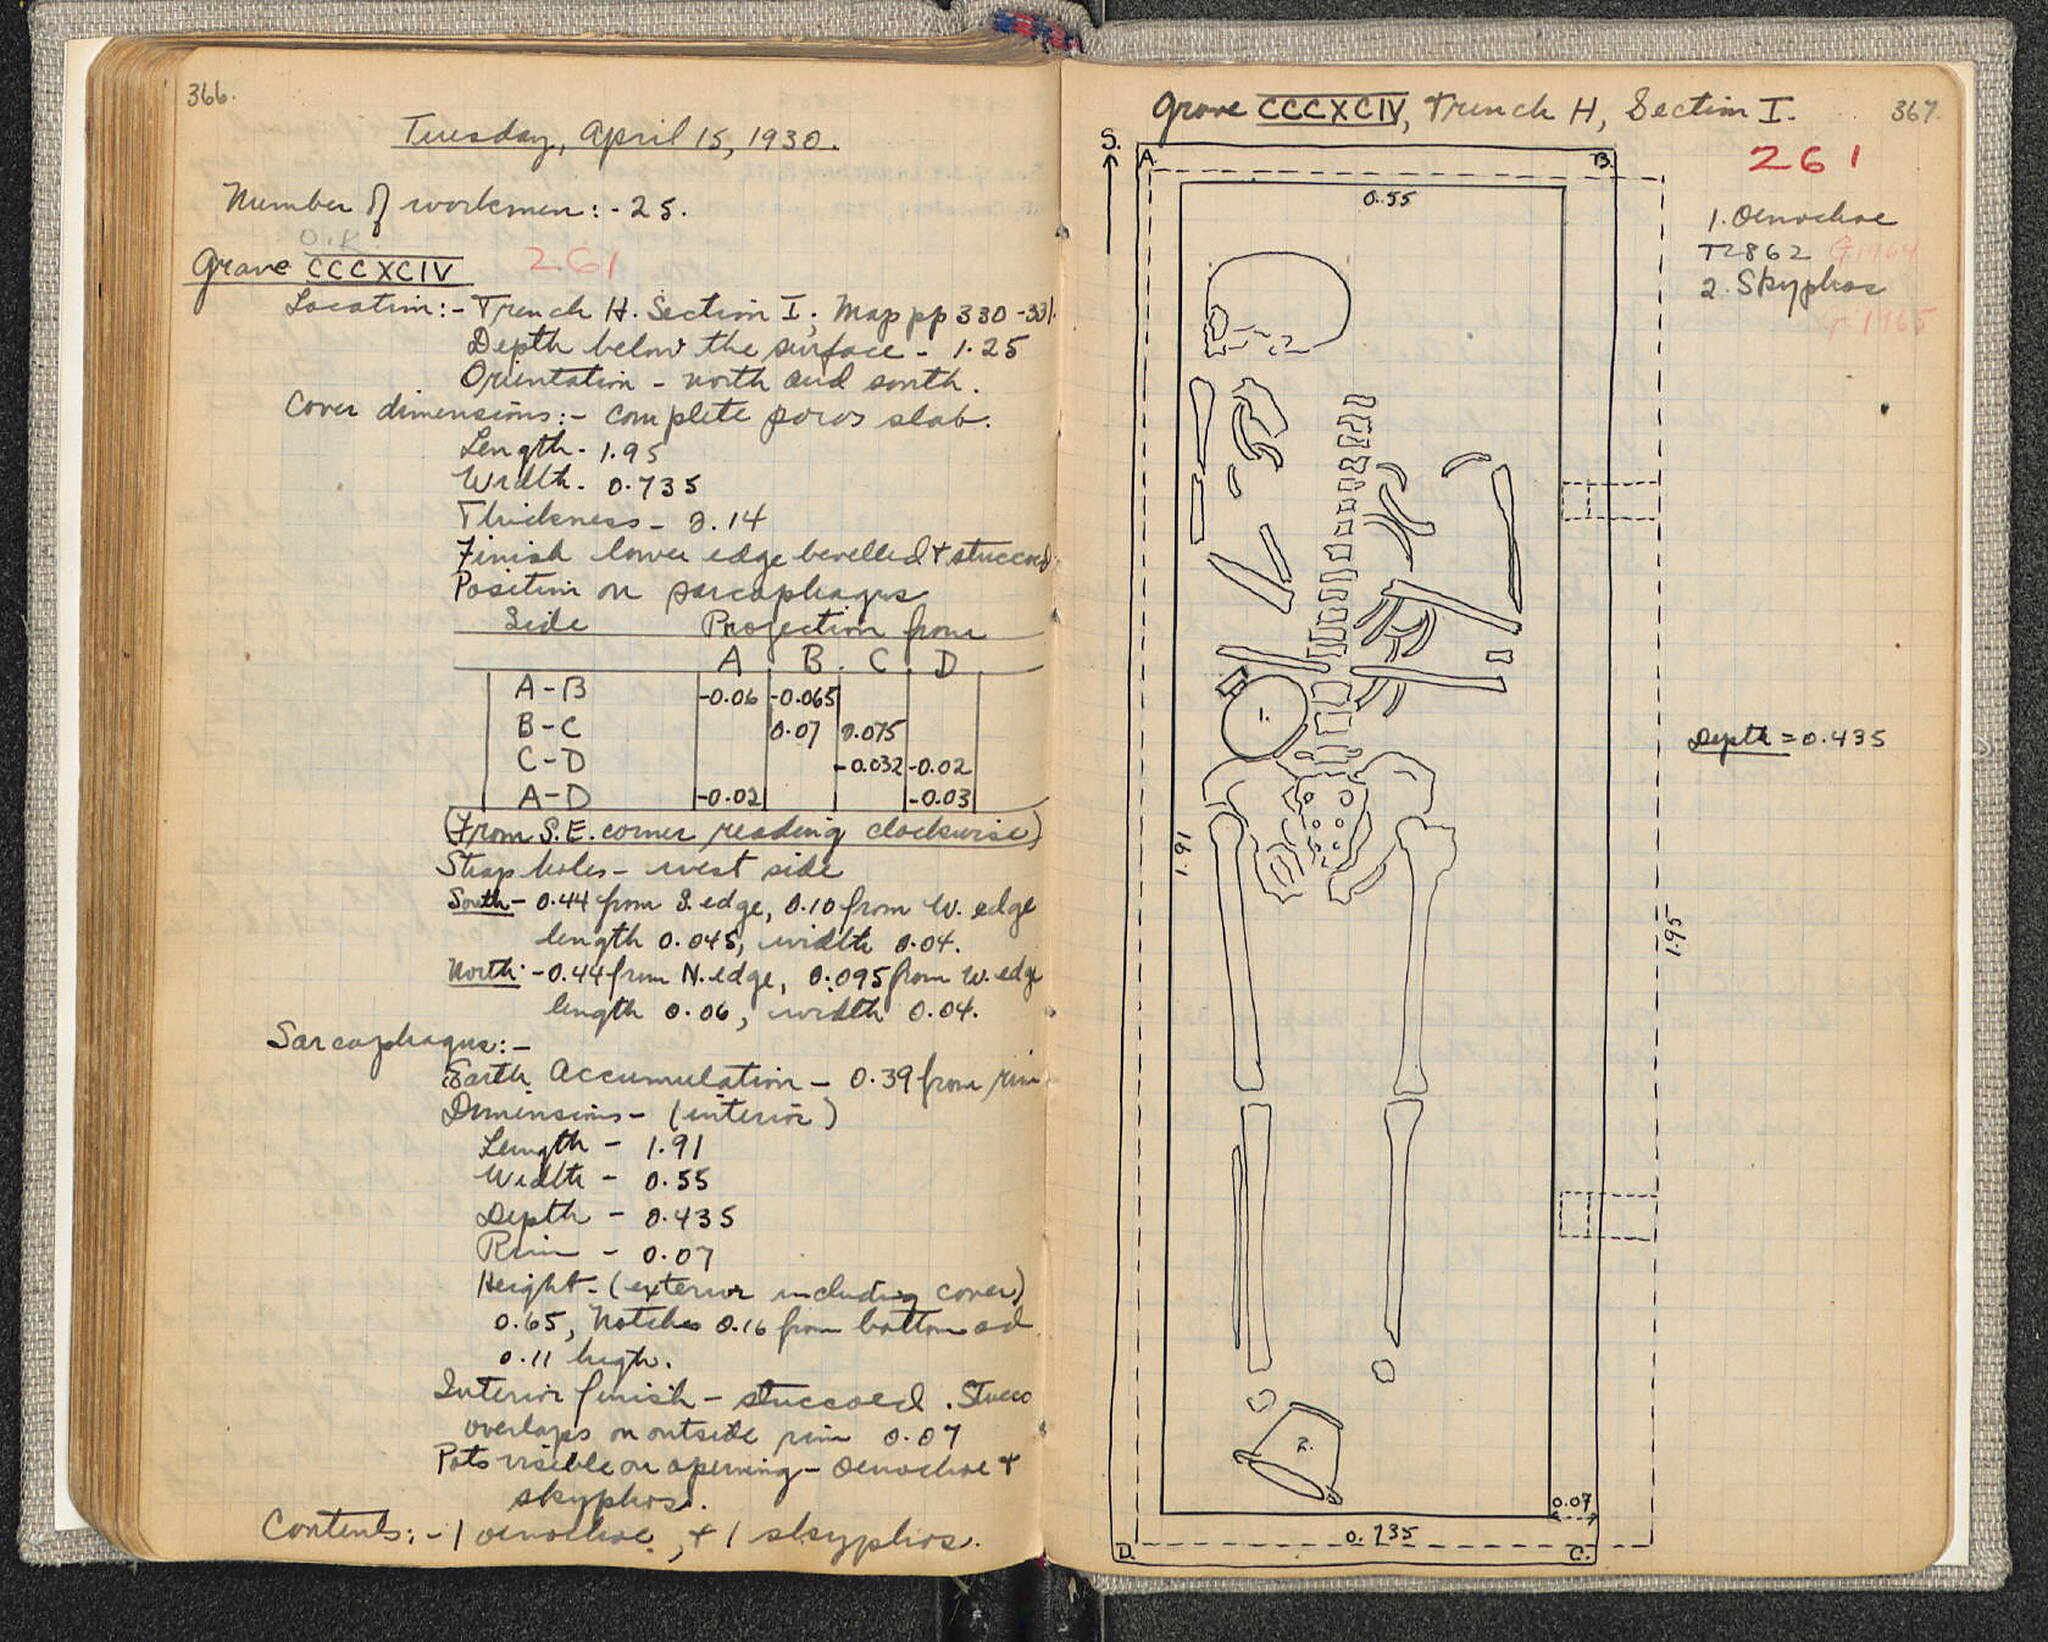 366.
Tuesday, April 15, 1930.
Number of workmen: - 25.
O.K.
Grave CCCXCIV 261
Location: - Trench H. Section I; Map pp 330-331.
Depth below the surface - 1.25
Orientation - north and south.
Cover dimensions: - complete poros slab.
Length - 1.95
Width - 0.735
Thickness - 0.14
Finish lower edge bevelled + stuccoed
Position on sarcophagus
Side Projection from
A B C D
A-B -0.06 -0.065
B-C 0.07 0.075
C-D -0.032 -0.02
A-D -0.02 -0.03
(From S.E. corner reading clockwise)
Strap holes - west side
South - 0.44 from S. edge, 0.10 from W. edge
length 0.045, width 0.04.
North: - 0.44 from N. edge, 0.095 from W. edge
length 0.06, width 0.04.
Sarcophagus: -
Earth Accumulation - 0.39 from rim
Dimensions - (interior)
Length - 1.91
Width - 0.55
Depth - 0.435
Rim - 0.07
Height - (exterior including cover)
0.65, Notches 0.16 from bottom ad
0.11 high.
Interior finish - stuccoed. Stucco
overlaps on outside rim 0.07
Pots visible on opening - Oenochoe +
skyphos.
Contents: - 1 oenochoe, + 1 skyphos.
Grave CCCXCIV, Trench H, Section I. 367.
261
S.
A. B.
0.55
1. Oenochoe
T2862 G.1964
2. Skyphos
G.1965
1.
Depth = 0.435
1.91
1.95
2.
0.07
0.735
D. C.